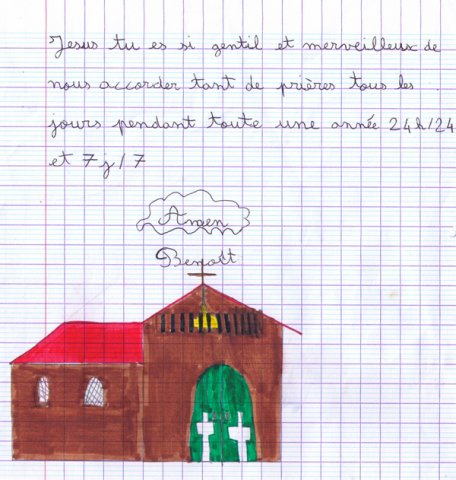 Jesus tu es si gentil et merveilleux de
nous accorder tant de prières tous les
jours pendant toute une année 24h/24
et 7j/7
Amen
Benoît